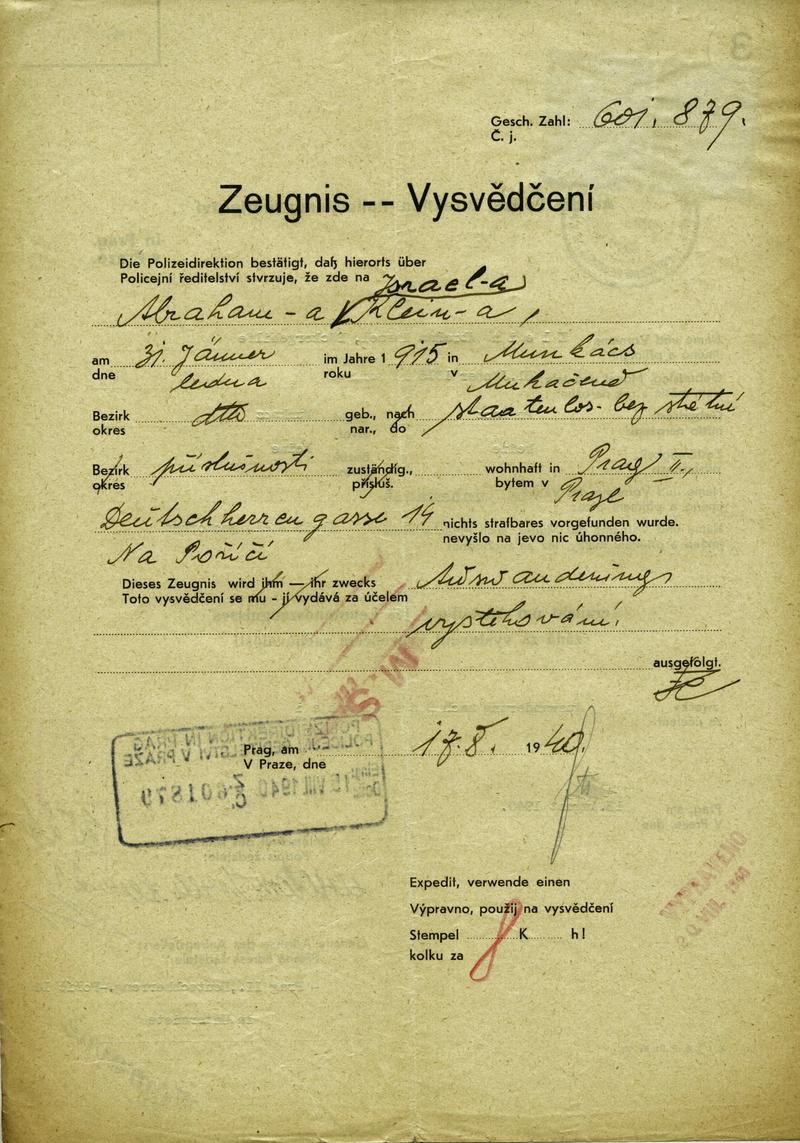 Gesch. Zahl: 601.879.
Č. j.
Zeugnis -- Vysvědčení
Die Polizeidirektion bestätigt, daß hierorts über
Policejní ředitelství stvrzuje, že zde na Israel-a
Abraham-a Klein-a,
am 31. Jänner im Jahre 1 915 in Munkács
dne ledna roku v Mukačevě
Bezirk dtto geb., nach staatenlos- bez státní
okres nar., do
Bezirk příslušnosti zuständig., wohnhaft in Prag II.,
okres přísluš. bytem v Praze
Deutschherrengasse 14 nichts strafbares vorgefunden wurde.
nevyšlo na jevo nic úhonného.
Na Poříčí
Dieses Zeugnis wird ihm — ihr zwecks Auswanderung
Toto vysvědčení se mu - jí vydává za účelem
vystěhování.
ausgefolgt.
POLIZEIDIREKTION IN PRAG
POLICEJNÍ ŘEDITELSTVÍ V PRAZE
VIII. 1940
Č. 601879
Prag, am 17.8. 1940.
V Praze, dne
Expedit, verwende einen
Výpravno, použij na vysvědčení
Stempel K h!
kolku za
VYPRAVENO
VIII. 1940